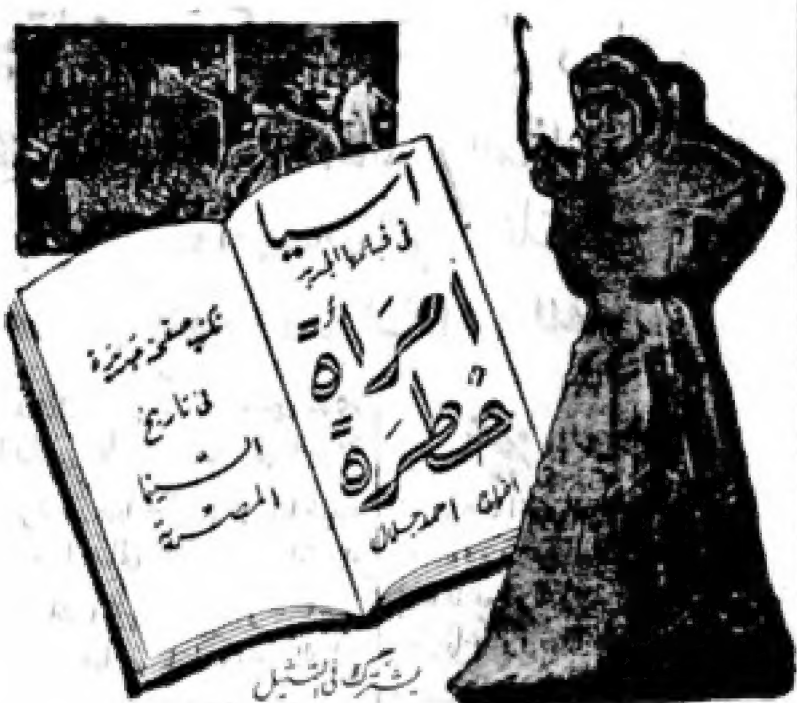 آسيا
في فيلمها الجديد
امرأة
خطرة
اخراج احمد جلال
تكتب صفحة جديدة
في تاريخ
السينما
المصرية
يشترك في التمثيل